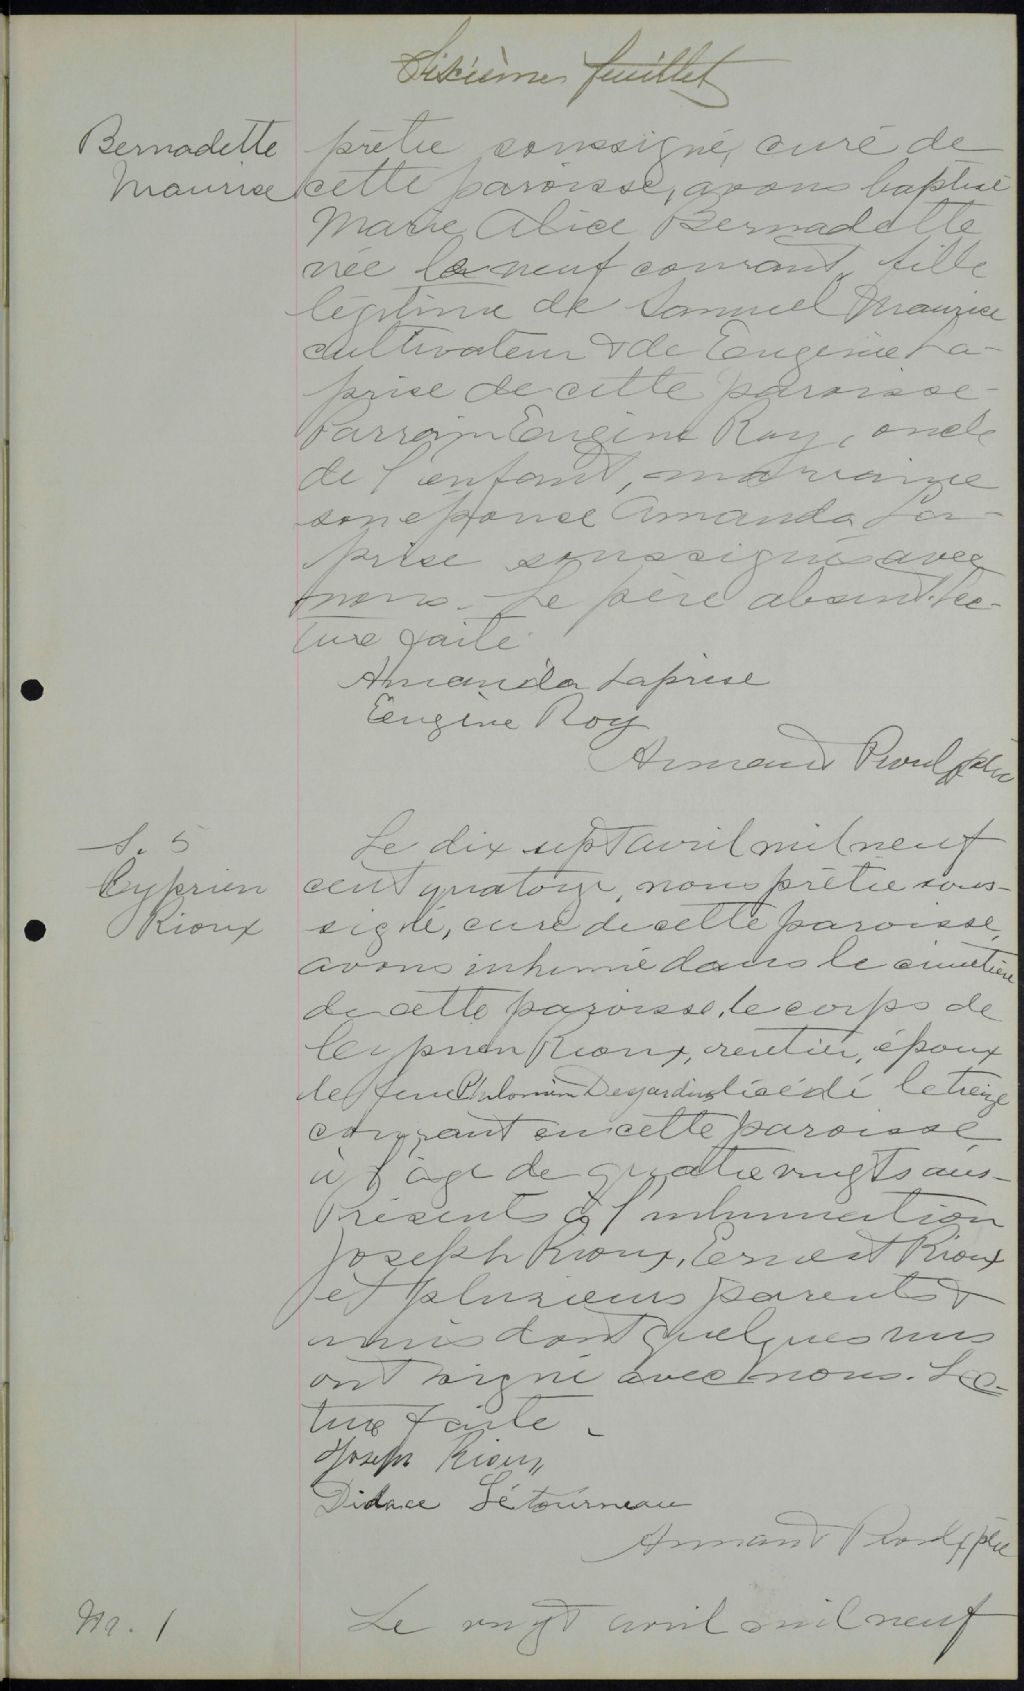 Sixième feuillet
Bernadette
Maurice
prêtre soussigné, curé de
cette paroisse, avons baptisé
Marie Alice Bernadette
née le neuf courant, fille
légitime de Samuel Maurice
cultivateur & de Eugénie La-
prise de cette paroisse-
Parrain Eugène Roy, oncle
de l'enfant, marraine
son épouse Amanda La-
prise soussignés avec
nous. Le père absent. Lec-
ture faite.
Amanda Laprise
Eugène Roy
Armand Proulx ptre
S. 5
Cyprien
Rioux
Le dix sept avril mil neuf
cent quatorze, nous prêtre sous-
signé, curé de cette paroisse,
avons inhumé dans le cimetière
de cette paroisse, le corps de
Cyprien Rioux, rentier, époux
de feue Philomène Desjardins décédé le treize
courant en cette paroisse
à l'âge de quatre vingts ans-
Présents à l'inhumation
Joseph Rioux, Ernest Rioux
et plusieurs parents &
amis dont quelques uns
ont signé avec nous. Lec-
ture faite.
Joseph Rioux
Didace Létourneau
Armand Proulx ptre
M. 1
Le vingt avril mil neuf